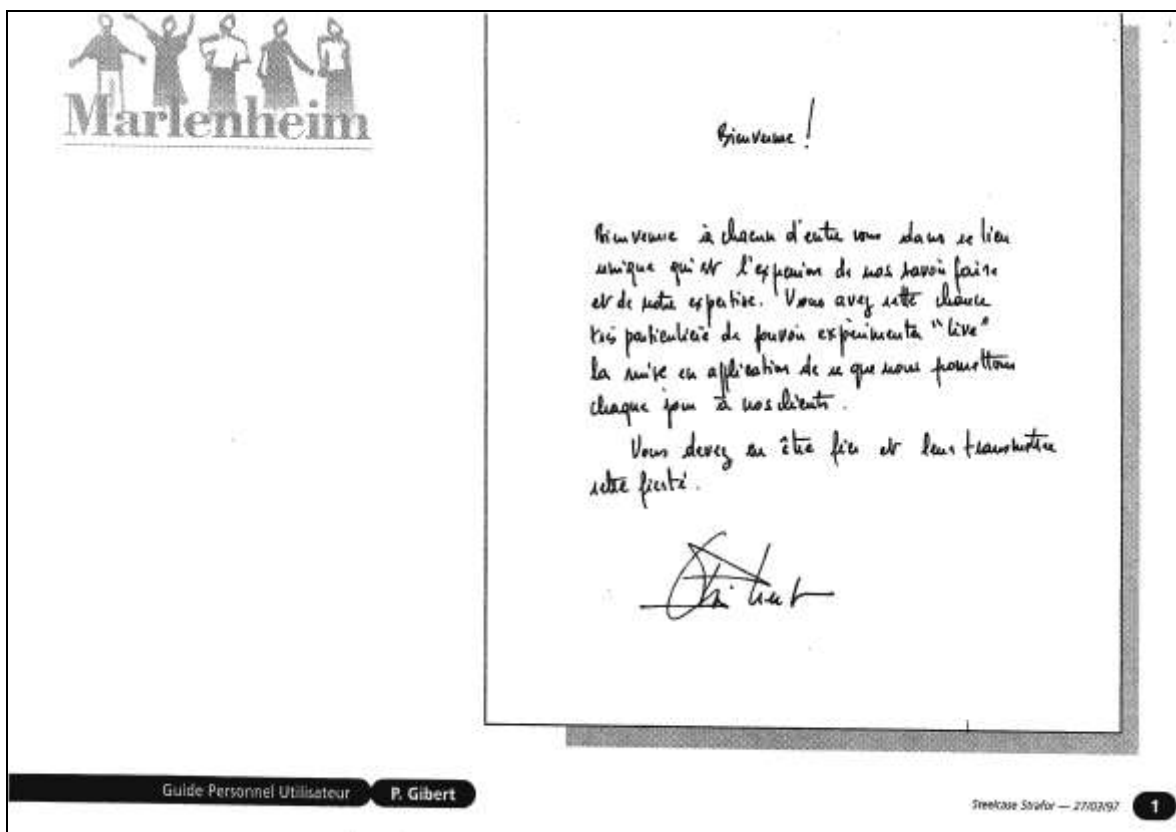 Marlenheim
Bienvenue !
Bienvenue à chacun d'entre vous dans ce lieu
unique qui est l'expression de nos savoir faire
et de notre expertise. Vous avez cette chance
très particulière de pouvoir expérimenter "live"
la mise en application de ce que nous promettons
chaque jour à nos clients.
Vous devez en être fier et leur transmettre
cette fierté.
Guide Personnel Utilisateur P. Gibert
Steelcase Strafor — 27/03/97 1